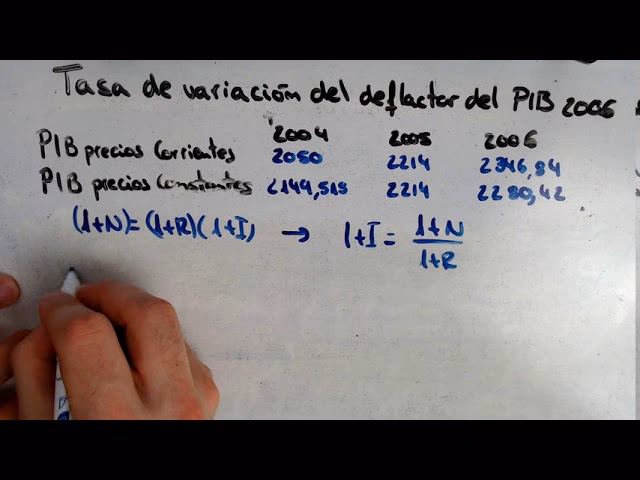 Tasa de variación del deflactor del PIB 2006
2004 2005 2006
PIB precios Corrientes 2050 2214 2346,84
PIB precios Constantes 2149,515 2214 2280,42
(1+N)=(1+R)(1+I) → 1+I = 1+N
1+R